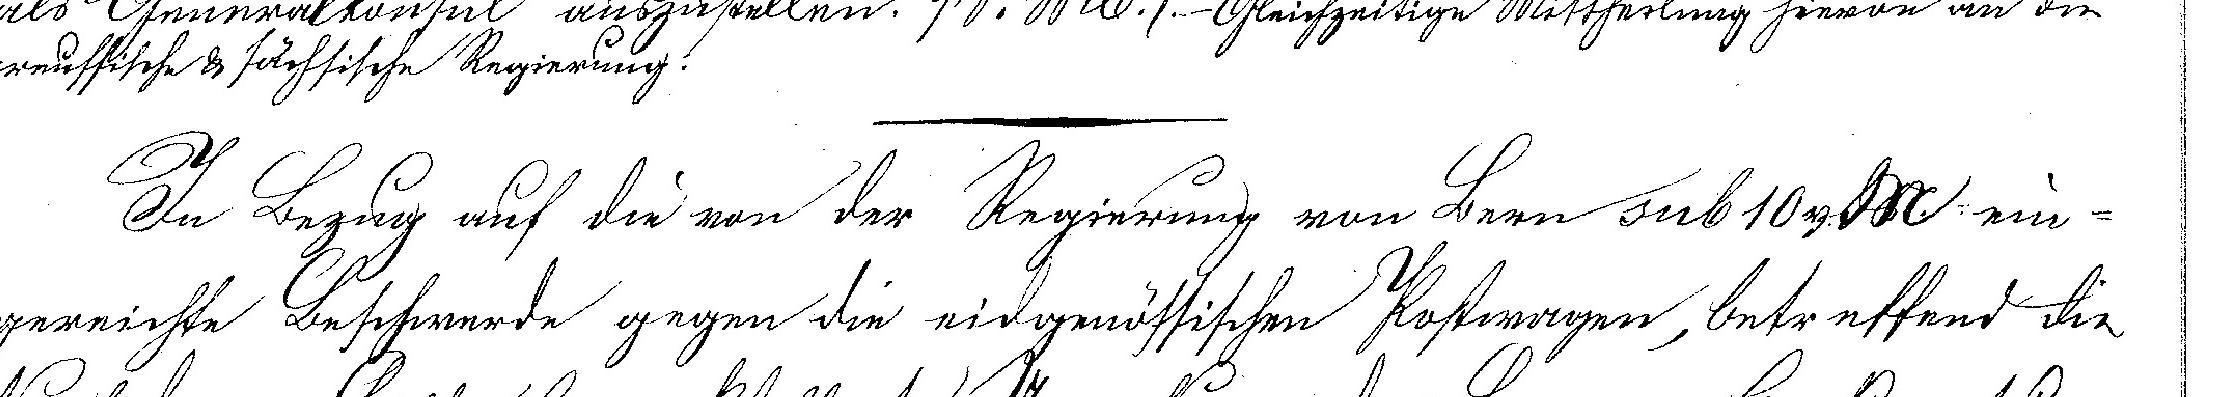 als Generalkonsul auszustellen. Gleichzeitige Mittheilung hievon an die
preussische & sächsische Regierung.
In Bezug auf die von der Regierung von Bern sub 10 v. M. ein-
gereichte Beschwerde gegen die eidgenössischen Postwagen, betreffend die